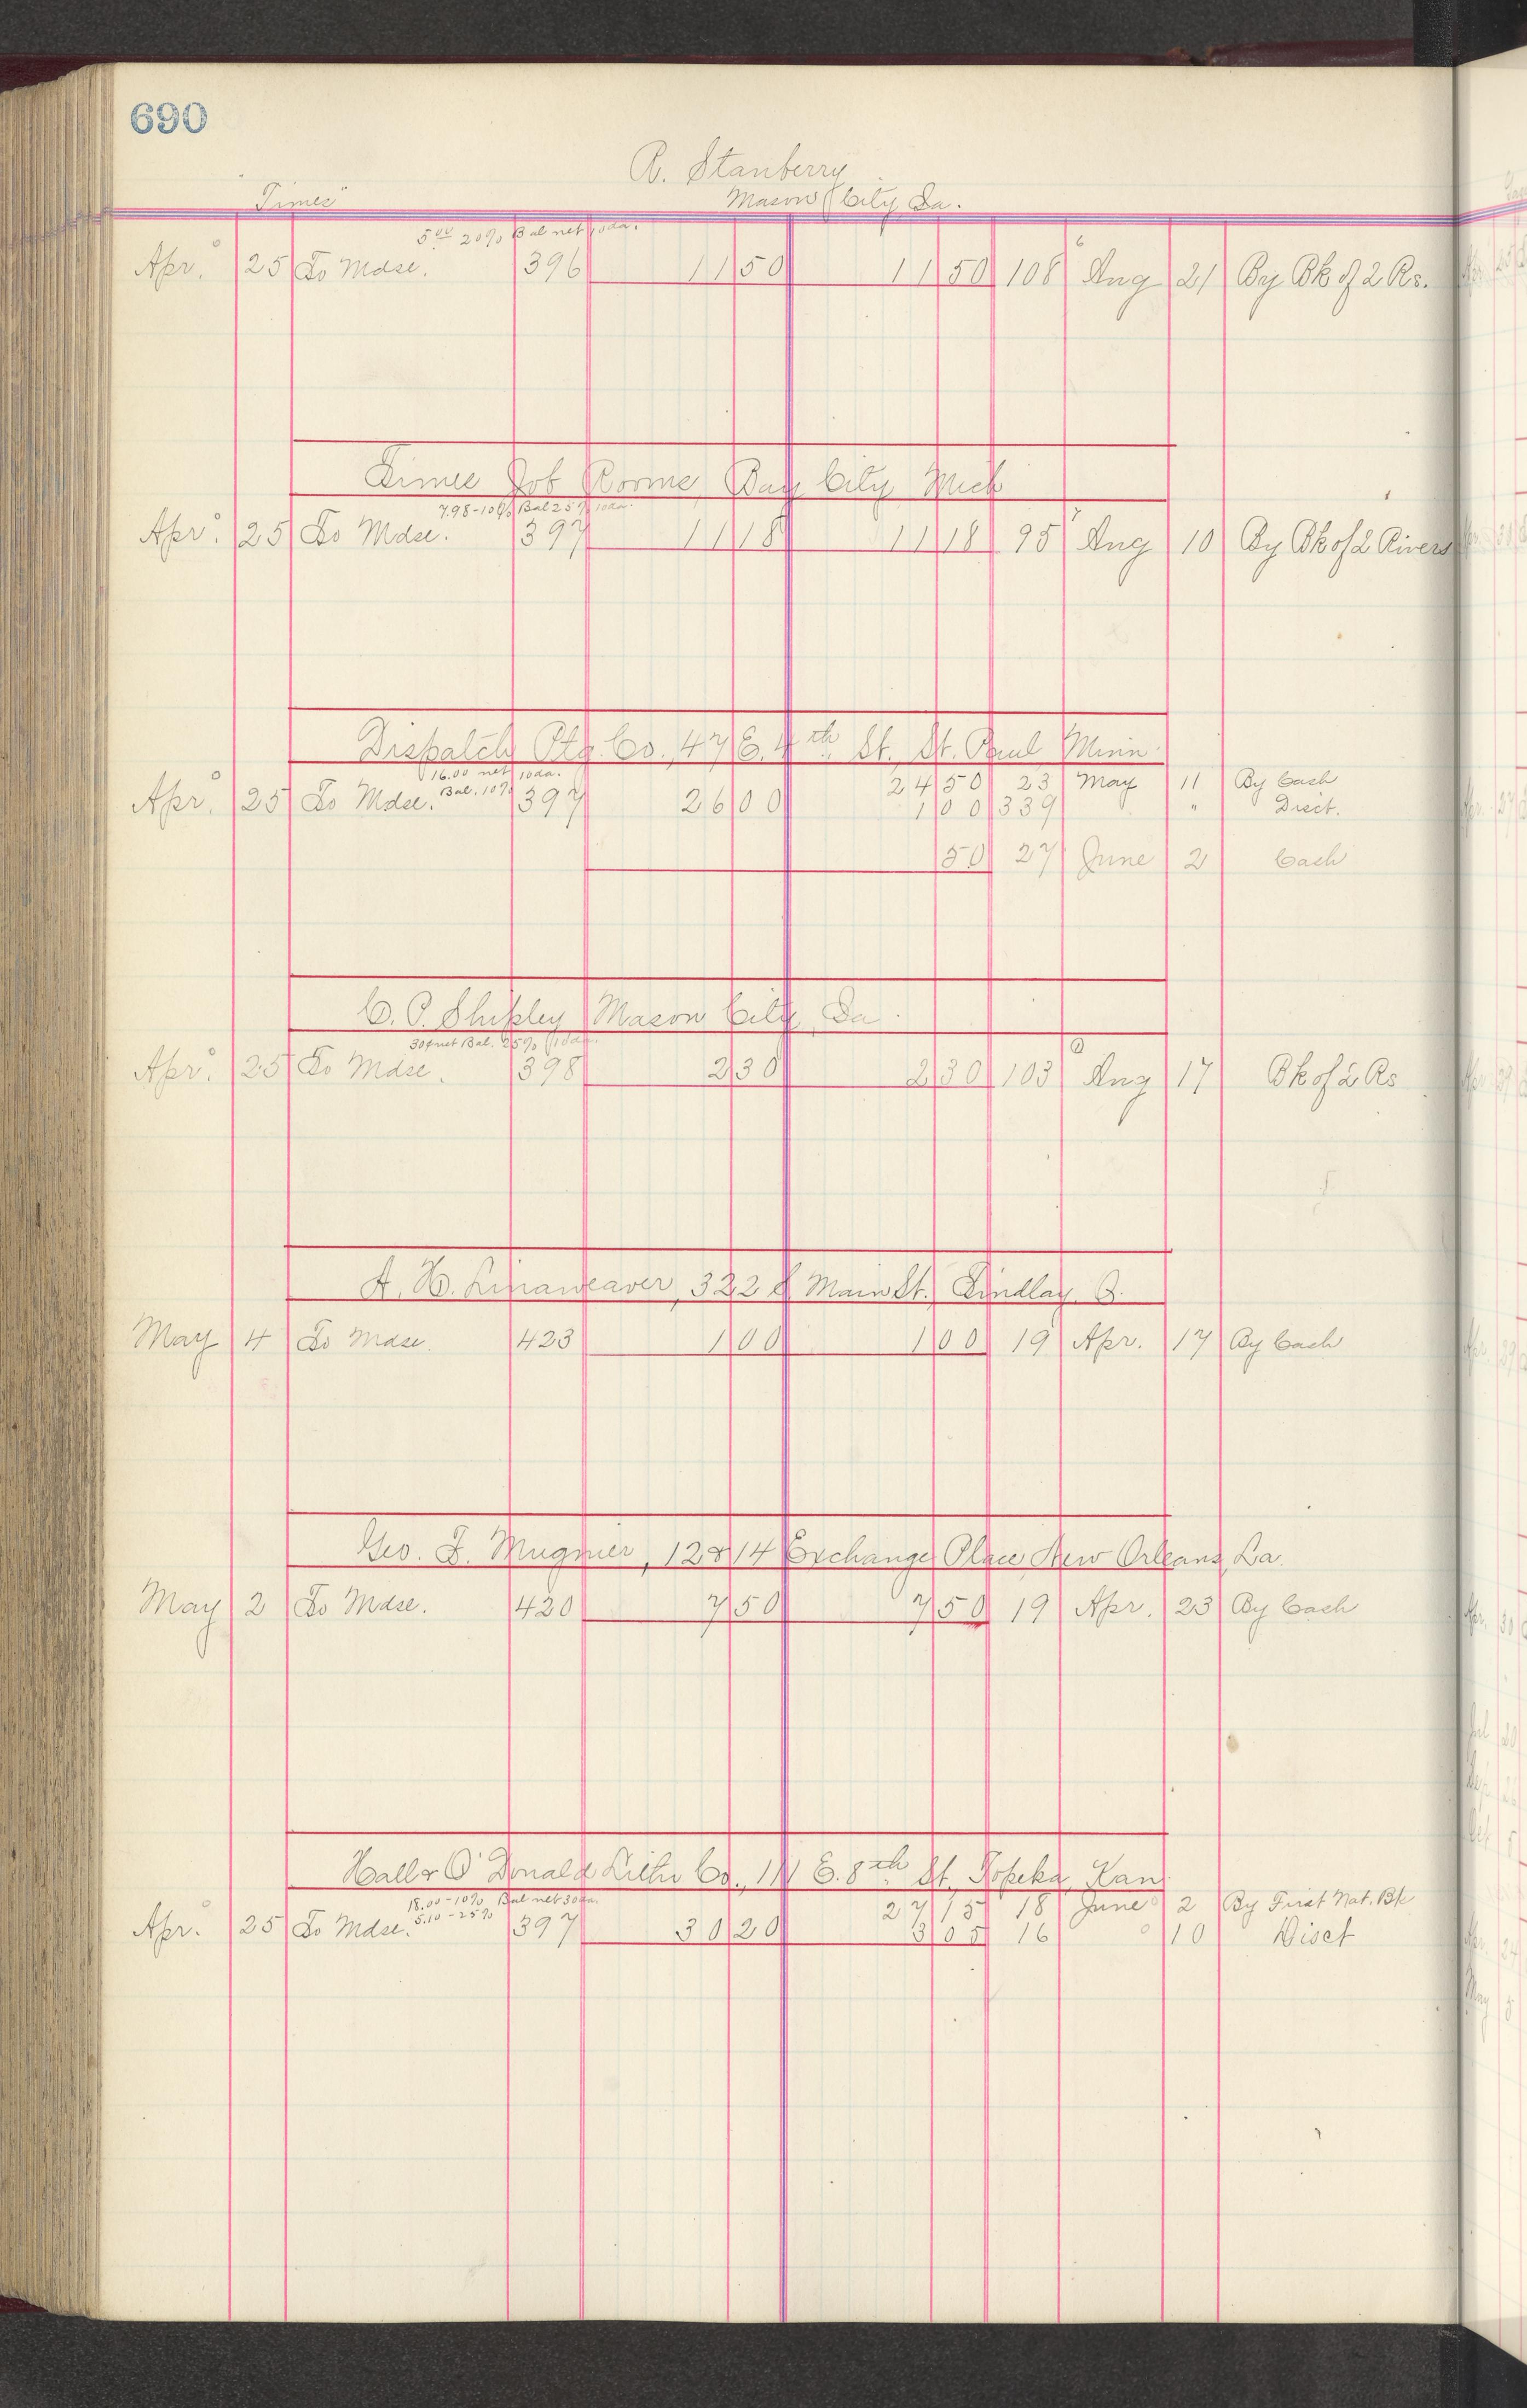 690
R. Stanberry
"Times" Mason City Ia.
5.00 20% Bal net 10da.
Apr. 25 To Mdse. 396 11 50 11 50 108 Aug 21 By Bk of 2 Rs.
Times Job Rooms, Bay City Mich
7.98-10% Bal 25% 10da.
Apr. 25 To Mdse. 397 11 18 11 18 95 Aug 10 By Bk of 2 Rivers
Dispatch Ptg. Co., 47 E. 4th St., St. Paul, Minn
16.00 net 10da. 24 50 23 May 11 By Cash
Bal. 10%
Apr. 25 To Mdse. 397 26 00 1 00 339 " Disct.
50 27 June 2 Cash
C. P. Shipley Mason City, Ia.
30¢ net Bal. 25% 10da.
Apr. 25 To Mdse. 398 2 30 2 30 103 Aug 17 Bk of 2 Rs
A. H. Linaweaver, 322 S Main St. Findlay O.
May 4 To Mdse. 423 1 00 1 00 19 Apr. 17 By Cash
Geo. F. Mugnier, 12 & 14 Exchange Place New Orleans, La.
May 2 To Mdse. 420 7 50 7 50 19 Apr. 23 By Cash
Hall & O'Donald Litho Co., 111 E. 8th St. Topeka, Kan
18.00-10% Bal net 30da. 27 15 18 June 2 By First Nat. Bk
5.10-25%
Apr. 25 To Mdse. 397 30 20 3 05 16 10 Disct